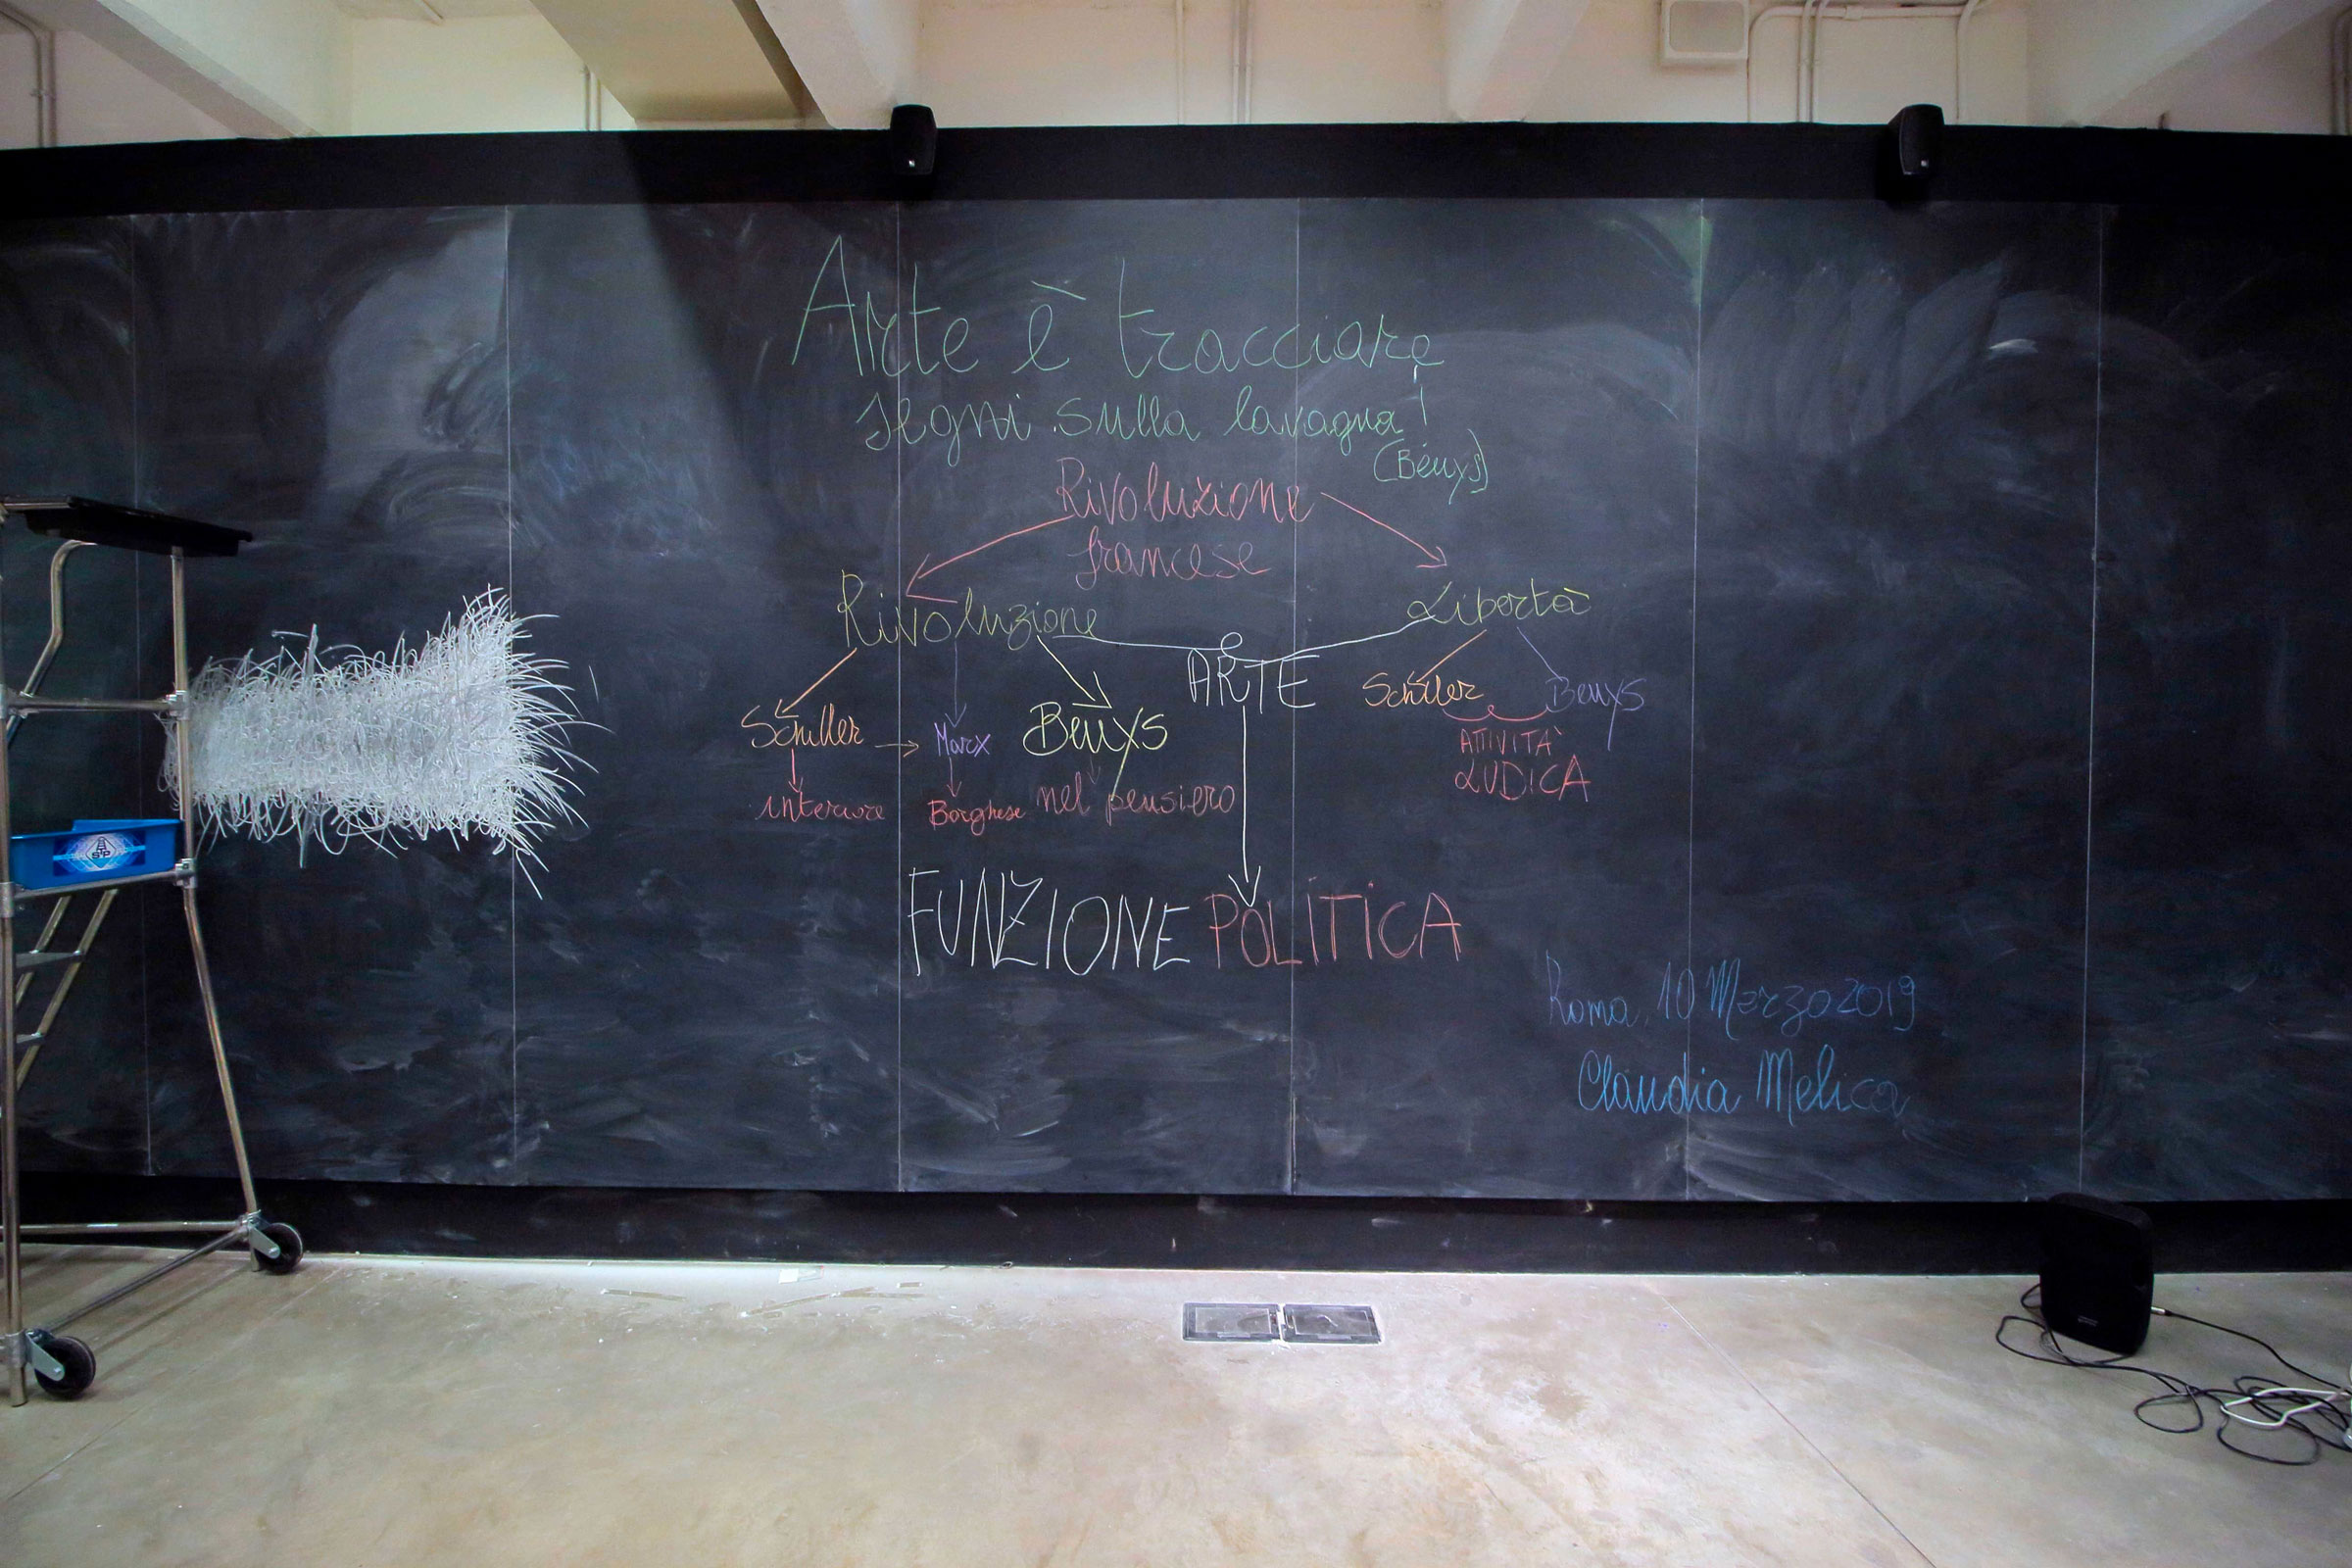 Arte è tracciare
segni sulla lavagna!
(Beuys)
Rivoluzione
francese
Rivoluzione
Libertà
ARTE
Schiller
Marx
Beuys
Schiller
Beuys
interiore
Borghese
nel pensiero
ATTIVITÀ
LUDICA
FUNZIONE POLITICA
Roma, 10 Marzo 2019
Claudia Melica